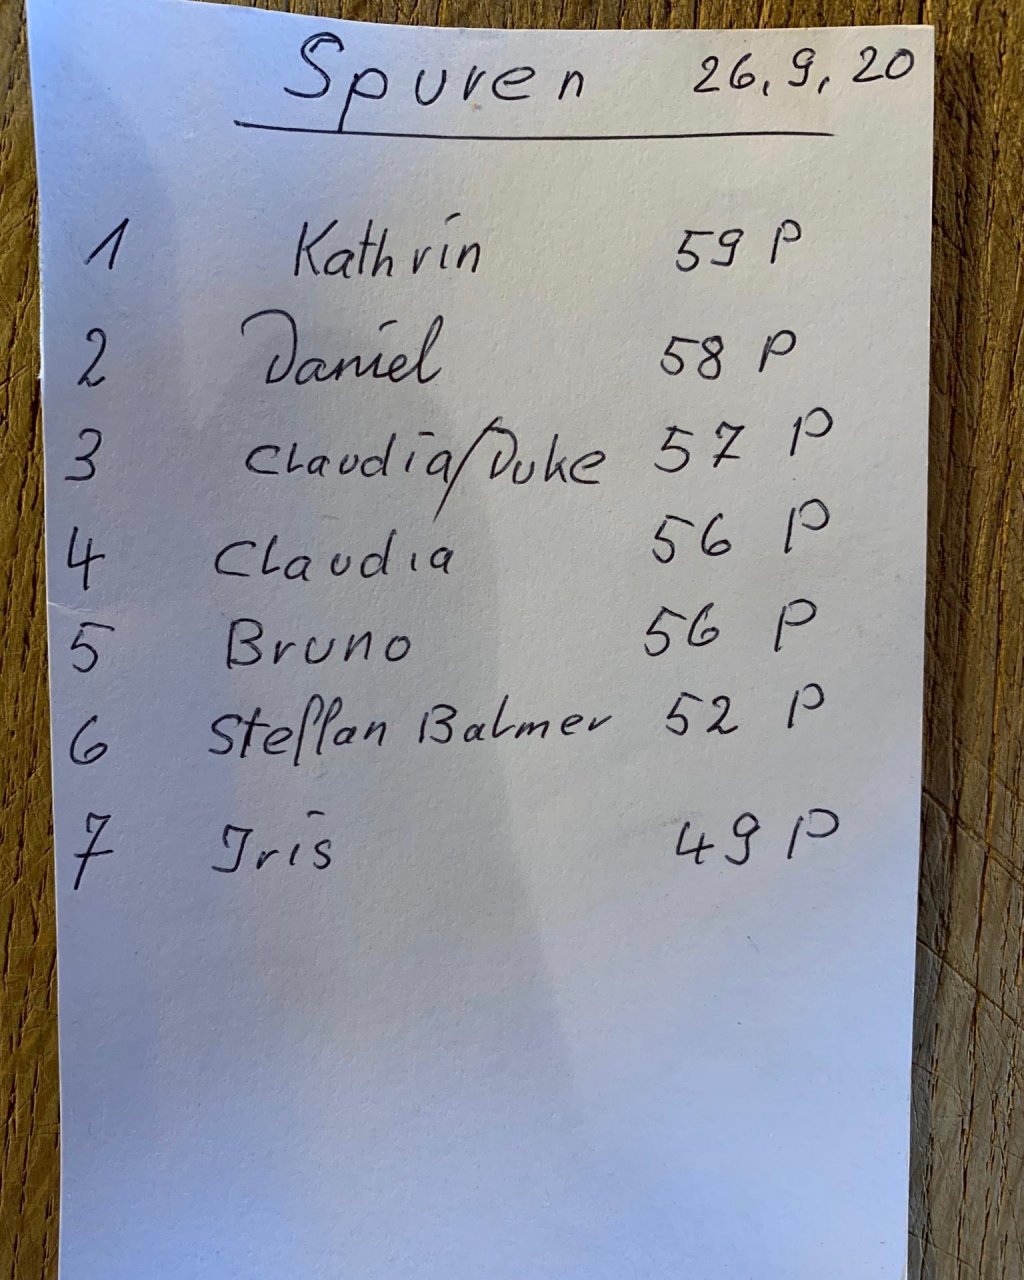 Spuren 26.9.20
1 Kathrin 59 P
2 Daniel 58 P
3 Claudia/Duke 57 P
4 Claudia 56 P
5 Bruno 56 P
6 Steffan Balmer 52 P
7 Iris 49 P